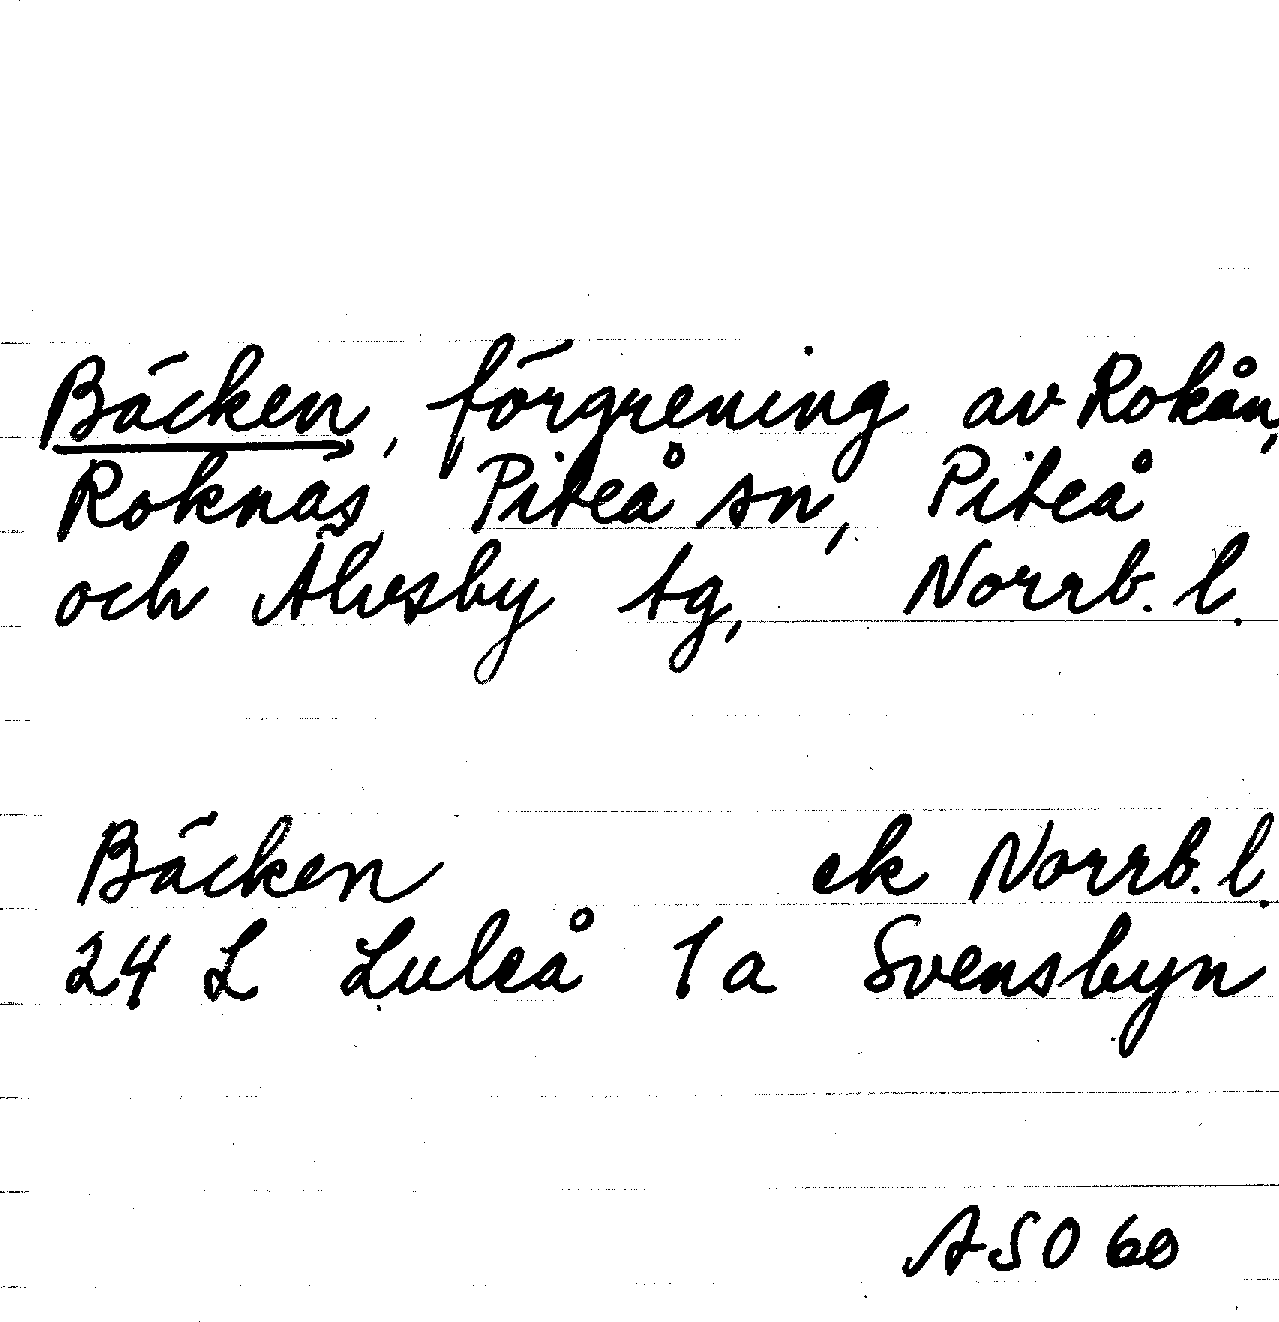 Bäcken, förgrening av Rokån,
Roknäs, Piteå sn, Piteå
och Älvsby tg, Norrb. l.
Bäcken ek Norrb. l.
24 L Luleå 1a Svensbyn
ASO 60